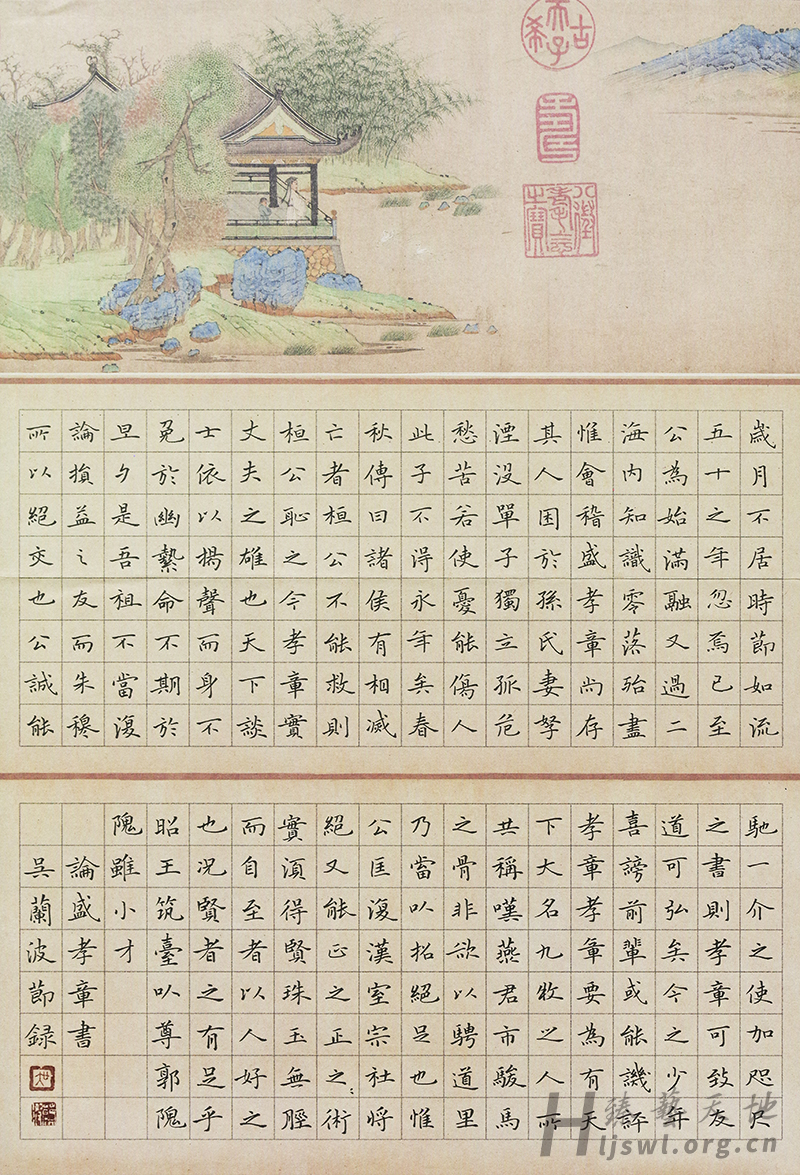 古希天子
壽
八徵耄念之寶
歲月不居時節如流
五十之年忽焉已至
公為始滿融又過二
海內知識零落殆盡
惟會稽盛孝章尚存
其人困於孫氏妻孥
湮沒單孑獨立孤危
愁苦若使憂能傷人
此子不得永年矣春
秋傳曰諸侯有相滅
亡者桓公不能救則
桓公恥之今孝章實
丈夫之雄也天下談
士依以揚聲而身不
免於幽縶命不期於
旦夕是吾祖不當復
論損益之友而朱穆
所以絕交也公誠能
馳一介之使加咫尺
之書則孝章可致友
道可弘矣今之少年
喜謗前輩或能譏評
孝章孝章要為有天
下大名九牧之人所
共稱嘆燕君市駿馬
之骨非欲以騁道里
乃當以招絕足也惟
公匡復漢室宗社將
絕又能正之正之術
實須得賢珠玉無脛
而自至者以人好之
也況賢者之有足乎
昭王筑臺以尊郭隗
隗雖小才
論盛孝章書
吳蘭波節録
臻藝天地
Hljswl.org.cn